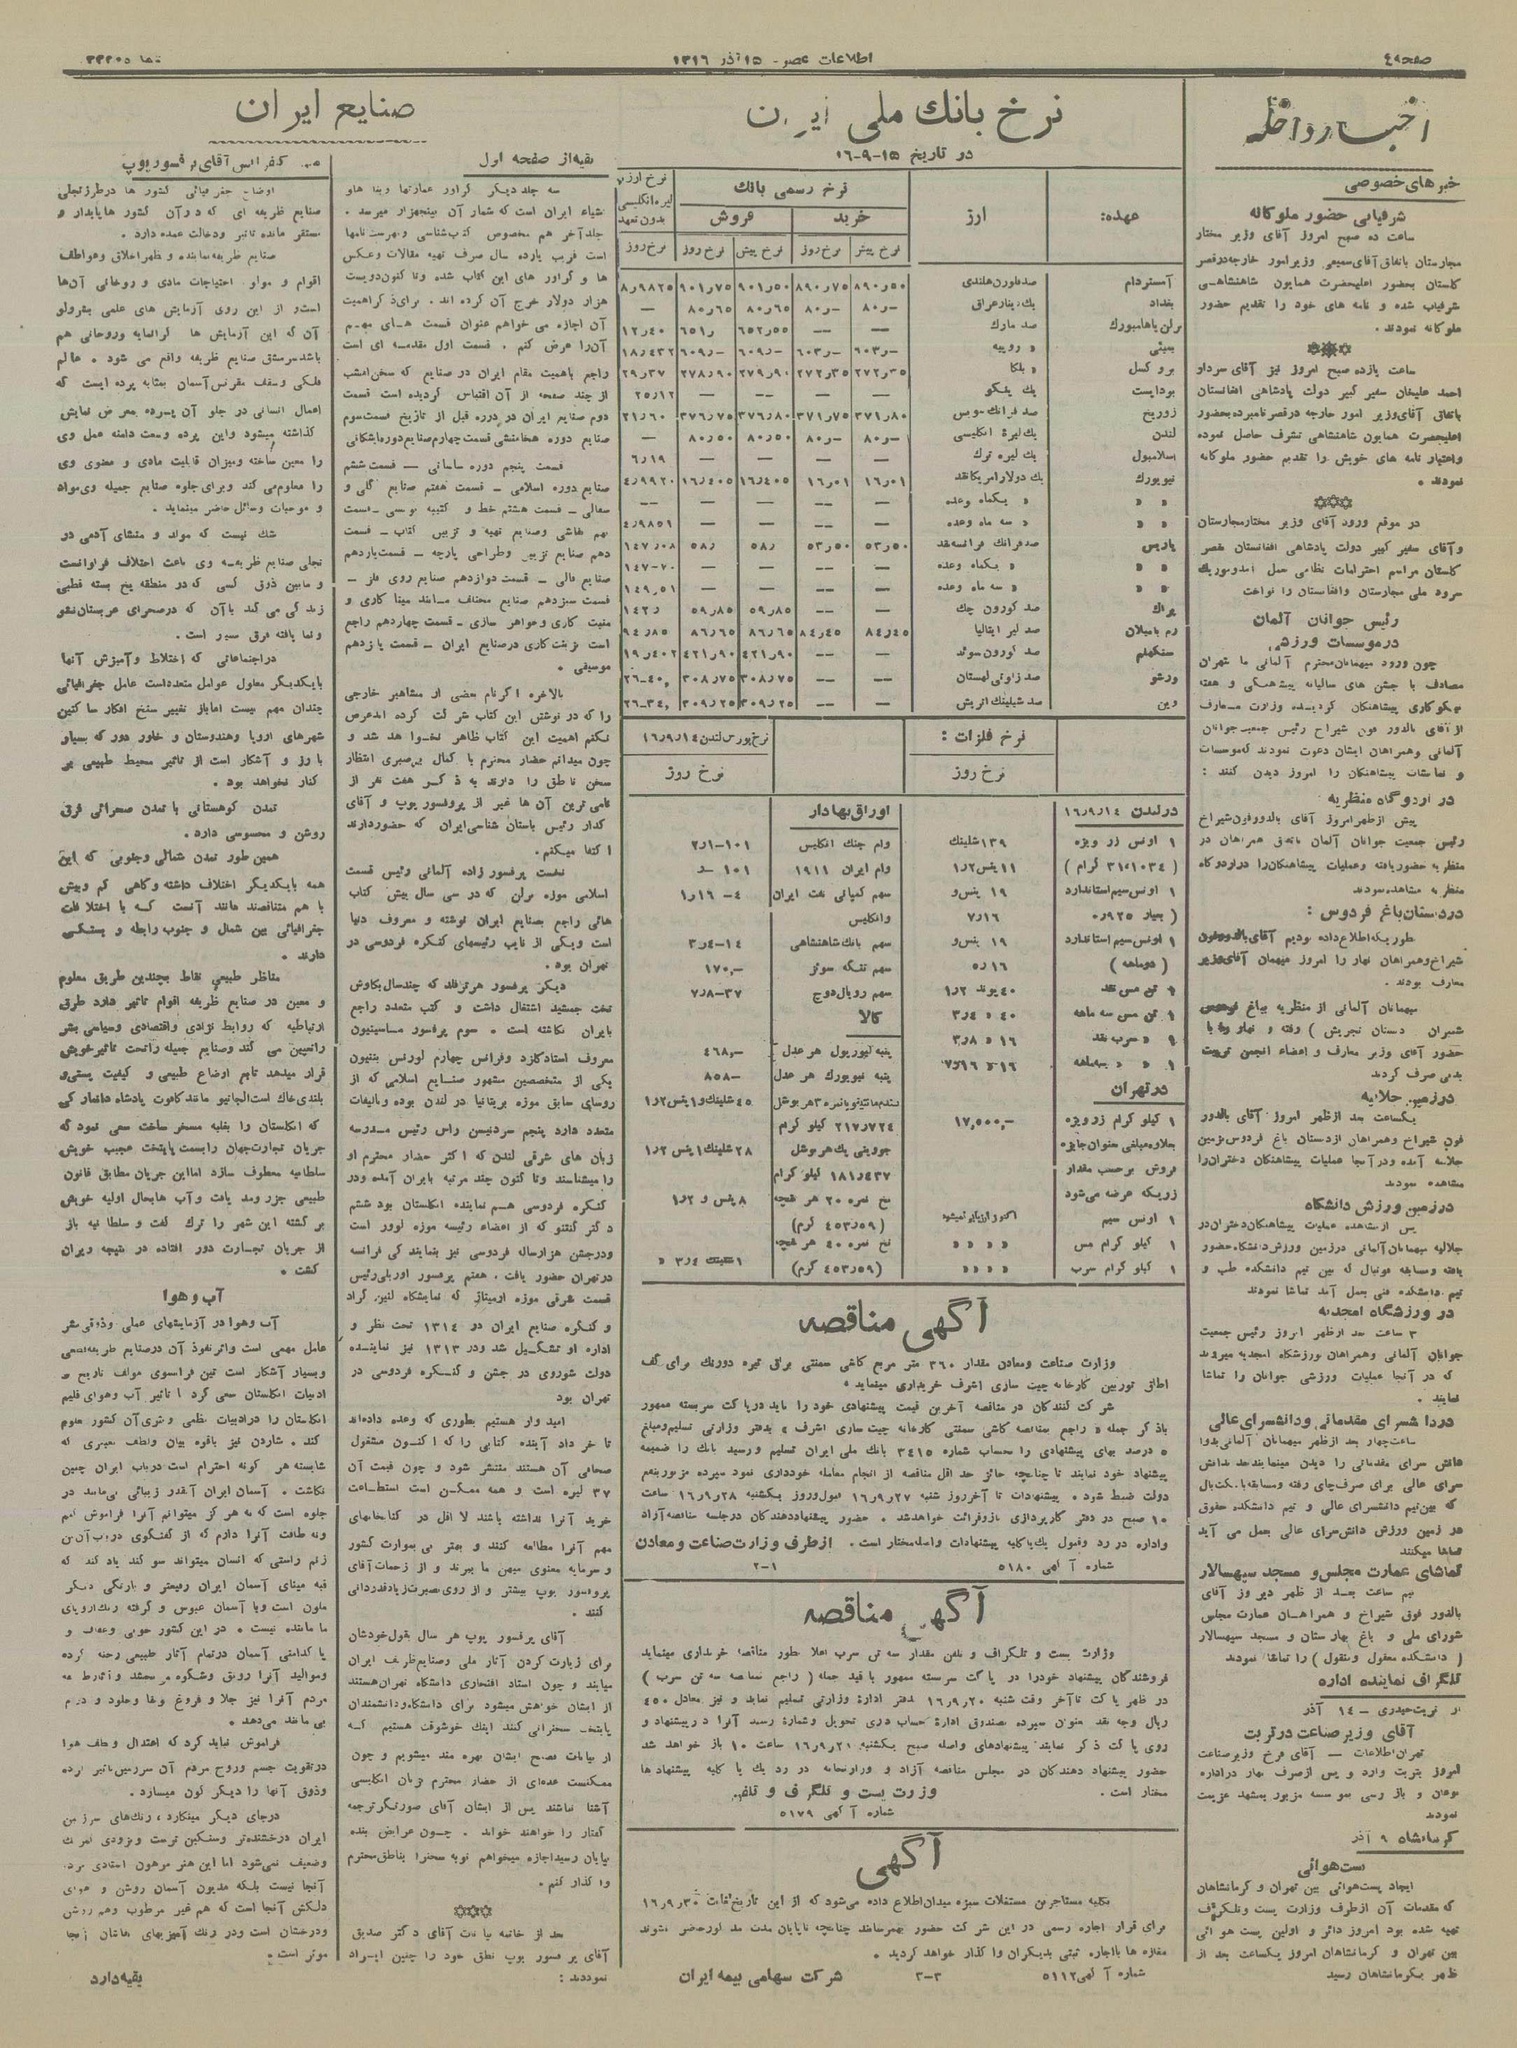 صفحه ٤
اطلاعات عصر - ١٥ آذر ١٣١٦
اخبار داخله
خبرهای خصوصی
شرفیابی حضور ملوکانه
ساعت ده صبح امروز آقای وزیر مختار
مجارستان باتفاق آقای سمیعی وزیر امور خارجه در قصر
گلستان بحضور اعلیحضرت همایون شاهنشاهی
شرفیاب شده و نامه های خود را تقدیم حضور
ملوکانه نمودند.
ساعت یازده صبح امروز نیز آقای سردار
احمد علیخان سفیر کبیر دولت پادشاهی افغانستان
باتفاق آقای وزیر امور خارجه در قصر نامبرده بحضور
اعلیحضرت همایون شاهنشاهی تشرف حاصل نموده
و اعتبار نامه های خویش را تقدیم حضور ملوکانه
نمودند.
در موقع ورود آقای وزیر مختار مجارستان
و آقای سفیر کبیر دولت پادشاهی افغانستان بقصر
گلستان مراسم احترامات نظامی بعمل آمد و موزیک
سرود ملی مجارستان و افغانستان را نواخت
رئیس جوانان آلمان
در موسسات ورزشی
چون ورود میهمانان محترم آلمانی ما بتهران
مصادف با جشن های سالیانه پیشاهنگی و هفته
نیکوکاری پیشاهنگان گردیده وزارت معارف
از آقای بالدور فون شیراخ رئیس جمعیت جوانان
آلمانی و همراهان ایشان دعوت نمودند که موسسات
و نمایشات پیشاهنگان را امروز دیدن کنند:
در اردوگاه منظریه
پیش از ظهر امروز آقای بالدور فون شیراخ
رئیس جمعیت جوانان آلمان باتفاق همراهان در
منظریه حضور یافته و عملیات پیشاهنگان را در اردوگاه
منظریه مشاهده نمودند
در دبستان باغ فردوس:
بطوریکه اطلاع داده بودیم آقای بالدور فون
شیراخ و همراهان نهار را امروز میهمان آقای وزیر
معارف بودند.
میهمانان آلمانی از منظریه بباغ فردوس
شمیران (دبستان تجریش) رفته و نهار را با
حضور آقای وزیر معارف و اعضاء انجمن تربیت
بدنی صرف کردند
در زمین جلالیه
یکساعت بعد از ظهر امروز آقای بالدور
فون شیراخ و همراهان از دبستان باغ فردوس بزمین
جلالیه آمده و در آنجا عملیات پیشاهنگان دختران را
مشاهده نمودند
در زمین ورزش دانشگاه
پس از مشاهده عملیات پیشاهنگان دختران در
جلالیه میهمانان آلمانی در زمین ورزش دانشگاه حضور
یافته و مسابقه فوتبال که بین تیم دانشکده طب و
تیم دانشکده فنی بعمل آمد تماشا نمودند
در ورزشگاه امجدیه
٣ ساعت بعد از ظهر امروز رئیس جمعیت
جوانان آلمانی و همراهان بورزشگاه امجدیه میروند
که در آنجا عملیات ورزشی جوانان را تماشا
نمایند.
در دانشسرای مقدماتی و دانشسرای عالی
تماشای عمارت مجلس و مسجد سپهسالار
نیم ساعت بعد از ظهر دیروز آقای
بالدور فون شیراخ و همراهان عمارت مجلس
شورای ملی و باغ بهارستان و مسجد سپهسالار
(دانشکده معقول و منقول) را تماشا نمودند
تلگراف نماینده اداره
از تربت حیدری - ١٤ آذر
آقای وزیر صناعت در تربت
تهران اطلاعات — آقای فرخ وزیر صناعت
امروز بتربت وارد و پس از صرف نهار در اداره
کرمانشاه ٩ آذر
پست هوائی
ایجاد پست هوائی بین تهران و کرمانشاهان
که مقدمات آن از طرف وزارت پست و تلگراف
تهیه شده بود امروز دائر و اولین پست هوائی
بین تهران و کرمانشاهان امروز یکساعت بعد از
ظهر بکرمانشاهان رسید
نرخ بانک ملی ایران
در تاریخ ١٥-٩-١٦
عهده:
ارز
نرخ رسمی بانک
خرید
فروش
نرخ ارز
لیره انگلیسی
بدون تعهد
نرخ پیش
نرخ روز
نرخ پیش
نرخ روز
نرخ روز
آمستردام صد فلورن هلندی ٨٩٠ر٥٠ ٨٩٠ر٧٥ ٩٠١ر٥٠ ٩٠١ر٧٥ ٨ر٩٨٢٥
بغداد یک دینار عراق ٨٠ر- ٨٠ر- ٨٠ر٦٥ ٨٠ر٦٥ —
برلن یا هامبورک صد مارک — — ٦٥٢ر٥٥ ٦٥١ر ١٢ر٤٠
بمبئی « روپیه ٦٠٣ر- ٦٠٣ر- ٦٠٩ر- ٦٠٩ر- ١٨ر٤٣٢
بروکسل « بلگا ٢٧٢ر٣٥ ٢٧٢ر٣٥ ٢٧٩ر٩٠ ٢٧٨ر٩٠ ٢٩ر٣٧
بوداپست یک پنگو ٢٥ر١٢
زوریخ صد فرانک سویس ٣٧١ر٨٠ ٣٧١ر٧٥ ٣٧٦ر٨٠ ٣٧٦ر٧٥ ٢١ر٦٠
لندن یک لیرهٔ انگلیسی ٨٠ر- ٨٠ر- ٨٠ر٥٠ ٨٠ر٥٠ —
اسلامبول یک لیره ترک — — — — ٦ر١٩
نیویورک یک دولار امریکا نقد ١٦ر٠١ ١٦ر٠١ ١٦ر٤٠٥ ١٦ر٤٠٥ ٤ر٩٩٢٠
« « « یکماه وعده — — — — —
« « « سه ماه وعده — — — — ٤ر٩٨٥١
پاریس صد فرانک فرانسه نقد ٥٣ر٥٠ ٥٣ر٥٠ ٥٨ر ٥٨ر ١٤٧ر٠٨
« « « یکماه وعده — — — — ١٤٧-٧٠
« « « سه ماه وعده — — — — ١٤٩ر٥١
پراک صد کورون چک — — ٥٩ر٨٥ ٥٩ر٨٥ ١٤٢ر
رم یا میلان صد لیر ایتالیا ٨٤ر٤٥ ٨٤ر٤٥ ٨٦ر٦٥ ٨٦ر٦٥ ٩٤ر٨٥
ستکهلم صد کورون سوئد — — ٤٢١ر٩٠ ٤٢١ر٩٠ ١٩ر٤٠٢
ورشو صد زلوتی لهستان — — ٣٠٨ر٧٥ ٣٠٨ر٧٥ ٢٦-٤٠
وین صد شیلینک اتریش — — ٣٠٩ر٢٥ ٣٠٩ر٢٥ ٢٦-٣٤
نرخ فلزات:
نرخ بورس لندن ١٦ر٩ر١٤
نرخ روز
نرخ روز
در لندن ١٦ر٩ر١٤
١ اونس زر ویژه ١٣٩ شلینک
(٣١ر١٠٣٤ گرام) ١١ پنس ١ر٢
١ اونس سیم استاندارد ١٩ پنس و
(بعیار ٠ر٩٢٥) ٧ر١٦
١ اونس سیم استاندارد ١٩ پنس و
(دوماهه) ٥ر١٦
١ تن مس نقد ٤٠ پوند ١ر٢
١ تن مس سه ماهه ٤٠ « ٣ر٤
١ « سرب نقد ١٦ « ٣ر٨
١ « « سه ماهه ١٦ « ٧ر١٦
در تهران
١ کیلو گرام زر ویژه ١٧,٥٠٠,-
بعلاوه مبلغی بعنوان جایزه
فروش بر حسب مقدار
زریکه عرضه میشود
١ اونس سیم
١ کیلو گرام مس « « « «
١ کیلو گرام سرب « « « «
اوراق بهادار
وام جنک انگلیس ١٠١-١ر٢
وام ایران ١٩١١
سهم کمپانی نفت ایران ٤-١ر١٦
و انگلیس
سهم بانک شاهنشاهی ١٤-٣ر٤
سهم تنگه سوئز ١٧٠,-
سهم رویال دوچ ٣٧-٧ر٨
کالا
پنبه لیورپول هر عدل ٤٦٨,-
پنبه نیویورک هر عدل ٨٥٨-
گندم مانیتوبا نمره ٣ هر بوشل ٤٥ شلینک و ١ پنس ١ر٢
٢١٧ر٧٢٤ کیلو گرام
جو وینی پک هر بوشل ٢٨ شلینک ١ پنس ١ر٢
١٨١ر٤٣٧ کیلو گرام
نخ نمره ٢٠ هر بقچه ٨ پنس و ١ر٢
(٤٥٣ر٥٩ گرم)
نخ نمره ٤٠ هر بقچه
(٤٥٣ر٥٩ گرم)
آگهی مناقصه
وزارت صناعت و معادن مقدار ٣٦٠ متر مربع کاشی سمنتی براق تیره دورنک برای کف
اطاق توربین کارخانه چیت سازی اشرف خریداری مینماید.
شرکت کنندگان در مناقصه آخرین قیمت پیشنهادی خود را باید در پاکت سربسته ممهور
با ذکر جمله «راجع بمناقصه کاشی سمنتی کارخانه چیت سازی اشرف» بدفتر وزارتی تسلیم و مبلغ
٥ درصد بهای پیشنهادی را بحساب شماره ٣٤١٥ بانک ملی ایران تسلیم و رسید بانک را ضمیمه
پیشنهاد خود نمایند تا چنانچه حائز حد اقل مناقصه از انجام معامله خودداری نمود سپرده مزبور بنفع
دولت ضبط شود. پیشنهادات تا آخر روز شنبه ١٦ر٩ر٢٧ قبول و روز یکشنبه ١٦ر٩ر٢٨ ساعت
١٠ صبح در دفتر کارپردازی باز و قرائت خواهد شد. حضور پیشنهاد دهندگان در جلسه مناقصه آزاد
و اداره در رد و قبول یک یا کلیه پیشنهادات واصله مختار است. از طرف وزارت صناعت و معادن
شماره آگهی ٥١٨٠ ٢-١
آگهی مناقصه
وزارت پست و تلگراف و تلفن مقدار سه تن سرب اعلا بطور مناقصه خریداری مینماید
فروشندگان پیشنهاد خود را در پاکت سربسته ممهور با قید جمله (راجع بمناقصه سه تن سرب)
در ظهر پاکت تا آخر وقت شنبه ١٦ر٩ر٢٠ بدفتر ادارهٔ وزارتی تسلیم نمایند و نیز معادل ٤٥٠
ریال وجه نقد بعنوان سپرده بصندوق ادارهٔ حسابداری تحویل و شمارهٔ رسید آنرا در پیشنهاد و
روی پاکت ذکر نمایند پیشنهادهای واصله صبح یکشنبه ١٦ر٩ر٢١ ساعت ١٠ باز خواهد شد
حضور پیشنهاد دهندگان در مجلس مناقصه آزاد و وزارتخانه در رد یک یا کلیه پیشنهادها
مختار است.
وزارت پست و تلگراف و تلفن
شماره آگهی ٥١٧٩
آگهی
بکلیه مستاجرین مستغلات سبزه میدان اطلاع داده میشود که از این تاریخ لغایت ١٦ر٩ر٣٠
برای قرار اجاره رسمی در این شرکت حضور بهمرسانند چنانچه تا پایان مدت مذکور حاضر نشوند
مغازه ها با اجاره ثبتی بدیگران واگذار خواهد گردید.
شماره آگهی ٥١١٢ ٣-٣ شرکت سهامی بیمه ایران
صنایع ایران
بقیه از صفحه اول
سه جلد دیگر گراور عمارتها و بناها و
اشیاء ایران است که شمار آن بپنجهزار میرسد.
جلد آخر هم مخصوص کتاب شناسی و فهرست نامها
است قریب یازده سال صرف تهیه مقالات و عکس
ها و گراور های این کتاب شده و تا کنون دویست
هزار دولار خرج آن کرده اند. برای ذکر اهمیت
آن اجازه می خواهم عنوان قسمت های مهم
آن را عرض کنم. قسمت اول مقدمه ای است
راجع باهمیت مقام ایران در صنایع که سخن امشب
از چند صفحه از آن اقتباس گردیده است قسمت
دوم صنایع ایران در دوره قبل از تاریخ قسمت سوم
صنایع دوره هخامنشی قسمت چهارم صنایع دوره اشکانی
قسمت پنجم دوره ساسانی — قسمت ششم
صنایع دوره اسلامی — قسمت هفتم صنایع گلی و
سفالی — قسمت هشتم خط و کتیبه نویسی — قسمت
نهم نقاشی و صنایع تهیه و تزیین کتاب — قسمت
دهم صنایع تزیین و طراحی پارچه — قسمت یازدهم
صنایع قالی — قسمت دوازدهم صنایع روی فلز —
قسمت سیزدهم صنایع مختلف مانند مینا کاری و
منبت کاری و جواهر سازی — قسمت چهاردهم راجع
است بزینت کاری در صنایع ایران — قسمت پانزدهم
موسیقی.
بالاخره اگر نام بعضی از مشاهیر خارجی
را که در نوشتن این کتاب شرکت کرده اند عرض
نکنم اهمیت این کتاب ظاهر نخواهد شد و
چون میدانم حضار محترم با کمال بیصبری انتظار
سخن ناطق را دارند بذکر هفت نفر از
نامی ترین آن ها غیر از پرفسور پوپ و آقای
گدار رئیس باستان شناسی ایران که حضور دارند
اکتفا میکنم.
نخست پرفسور زاره آلمانی رئیس قسمت
اسلامی موزه برلن که در سی سال پیش کتاب
هائی راجع بصنایع ایران نوشته و معروف دنیا
است و یکی از نایب رئیسهای کنگره فردوسی در
تهران بود.
دیگر پرفسور هرتزفلد که چند سال بکاوش
تخت جمشید اشتغال داشت و کتب متعدد راجع
بایران نگاشته است. سوم پرفسور ماسینیون
معروف استاد کلژ دو فرانس چهارم لورنس بنیون
یکی از متخصصین مشهور صنایع اسلامی که از
روسای سابق موزه بریتانیا در لندن بوده و تالیفات
متعدد دارد پنجم سر دنیسن راس رئیس مدرسه
زبان های شرقی لندن که اکثر حضار محترم او
را میشناسند و تا کنون چند مرتبه بایران آمده و در
کنگره فردوسی هم نماینده انگلستان بود ششم
دکتر کنتنو که از اعضاء رئیسه موزه لوور است
و در جشن هزار ساله فردوسی نیز بنمایندگی فرانسه
در تهران حضور یافت. هفتم پرفسور اوربلی رئیس
قسمت شرقی موزه ارمیتاژ که نمایشگاه لنین گراد
و کنگره صنایع ایران در ١٣١٤ تحت نظر و
اداره او تشکیل شد و در ١٣١٣ نیز نماینده
دولت شوروی در جشن و کنگره فردوسی در
تهران بود
امیدوار هستیم بطوری که وعده داده اند
تا خرداد آینده کتابی را که اکنون مشغول
صحافی آن هستند منتشر شود و چون قیمت آن
٣٧ لیره است و همه ممکن است استطاعت
خرید آنرا نداشته باشند لااقل در کتابخانهای
مهم آنرا مطالعه کنند و بهتر پی بمهارت کشور
و سرمایه معنوی میهن ما ببرند و از زحمات آقای
پروفسور پوپ بیشتر و از روی بصیرت زیاد قدردانی
کنند.
آقای پرفسور پوپ هر سال بقول خودشان
برای زیارت کردن آثار ملی و صنایع ظریف ایران
میآیند و چون استاد افتخاری دانشگاه تهران هستند
از ایشان خواهش میشود برای دانشگاه و دانشمندان
پایتخت سخنرانی کنند اینک خوشوقت هستیم که
از بیانات فصیح ایشان بهره مند میشویم و چون
ممکنست عده ای از حضار محترم بزبان انگلیسی
آشنا نباشند پس از ایشان آقای صورتگر ترجمه
گفتار را خواهند خواند. چون عرایض بنده
بپایان رسید اجازه میخواهم نوبه سخن را بناطق محترم
واگذار کنم.
بعد از خاتمه بیانات آقای دکتر صدیق
آقای پرفسور پوپ نطق خود را چنین ایراد
نمودند:
متن کنفرانس آقای پرفسور پوپ
اوضاع جغرافیائی کشور ها در طرز تجلی
صنایع ظریفه ای که در آن کشور ها پایدار و
مستقر مانده تاثیر و دخالت عمده دارد.
صنایع ظریفه نماینده و مظهر اخلاق و عواطف
اقوام و مولود احتیاجات مادی و روحانی آن ها
است و از این روی آزمایش های علمی بشر و لو
آن که این آزمایش ها گرانمایه و روحانی هم
باشد سرمشق صنایع ظریفه واقع می شود. عالم
فلکی و سقف مقرنس آسمان بمثابه پرده ایست که
اعمال انسانی در جلو آن پرده بمعرض نمایش
گذاشته میشود و این پرده وسعت دامنه عمل وی
را معین ساخته و میزان قابلیت مادی و معنوی وی
را معلوم می کند و برای جلوه صنایع جمیله وی مواد
و موجبات و وسائل حاضر مینماید.
شک نیست که مولد و منشای آدمی در
تجلی صنایع ظریفه وی باعث اختلاف فراوانست
و مابین ذوق کسی که در منطقه یخ بسته قطبی
زندگی می کند با آن که در صحرای عربستان نشو
و نما یافته فرق بسیار است.
در اجتماعاتی که اختلاط و آمیزش آنها
بایکدیگر معلول عوامل متعدد است عامل جغرافیائی
چندان مهم نیست اما باز تغییر سنخ افکار ساکنین
شهرهای اروپا و هندوستان و خاور دور که بسیار
بارز و آشکار است از تاثیر محیط طبیعی بر
کنار نخواهد بود.
تمدن کوهستانی با تمدن صحرائی فرق
روشن و محسوسی دارد.
همین طور تمدن شمالی و جنوبی که این
همه بایکدیگر اختلاف داشته و گاهی کم و بیش
با هم متناقضند مانند آنست که با اختلافات
جغرافیائی بین شمال و جنوب رابطه و بستگی
دارند.
مناظر طبیعی نقاط بچندین طریق معلوم
و معین در صنایع ظریفه اقوام تاثیر دارد طرق
ارتباطیه که روابط نژادی و اقتصادی و سیاسی بشر
را تعیین می کند و صنایع جمیله را تحت تاثیر خویش
قرار میدهد تابع اوضاع طبیعی و کیفیت پستی و
بلندی خاک است
که انگلستان را بغلبه مسخر ساخت سعی نمود که
جریان تجارت جهان را بسمت پایتخت عجیب خویش
سلطانیه معطوف سازد اما این جریان مطابق قانون
طبیعی جزر و مد یافت و آب ها بحال اولیه خویش
برگشته این شهر را ترک گفت و سلطانیه باز
از جریان تجارت دور افتاده در نتیجه ویران
گشت.
آب و هوا
آب و هوا در آزمایشهای عملی و ذوقی بشر
عامل مهمی است و اثر نفوذ آن در صنایع ظریفه
و بسیار آشکار است تین فرانسوی مولف تاریخ
ادبیات انگلستان سعی کرد تا تاثیر آب و هوای اقلیم
انگلستان را در ادبیات نظمی و نثری آن کشور معلوم
کند. شاردن نیز باقوه بیان و لطف تعبیری که
شایسته هر گونه احترام است در باب ایران چنین
نگاشت. آسمان ایران آنقدر زیبائی
جلوه است که من هرگز میتوانم آنرا فراموش کنم
زنم راستی که انسان میتواند سوگند یاد کند که
قبه مینای آسمان ایران رفیعتر و بارنگی دیگر
ملون است و با آسمان عبوس و گرفته رنک اروپای
ما مانند نیست. در این کشور خوبی و عفاف و
پاکدامنی آسمان در تمام آثار طبیعی رخنه کرده
و موالید آنرا رونق و شکوه میبخشد
مردم آنرا نیز جلا و فروغ
بی مانند می دهد.
فراموش نباید کرد که اعتدال و لطف هوا
در تقویت جسم و روح مردم آن سرزمین تاثیر کرده
و ذوق آنها را دیگر گون میسازد.
در جای دیگر مینگارد، رنگ های سرزمین
ایران درخشنده تر و سنگین ترست و بزودی کمرنگ
و ضعیف نمی شود اما این هنر مرهون استادی مردم
آنجا نیست بلکه مدیون آسمان روشن و هوای
دلکش آنجا است که هم غیر مرطوب و هم روشن
و درخشان است و در رنگ آمیزیهای نقاشان آنجا
موثر است.
بقیه دارد